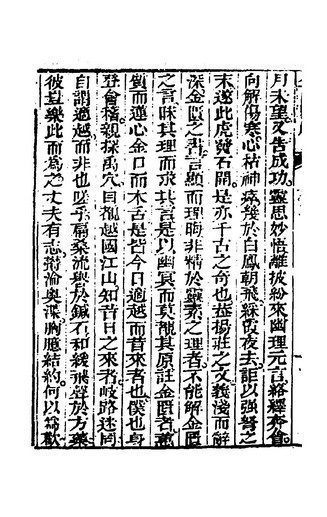 月未望又告成功靈思妙悟離披紛來幽理元言絡繹奔會
向解傷寒心枯神疲幾於白鳳朝飛綵霞夜去詎以強弩之
末遂此虎發石開是亦千古之奇也蓋揚莊之文義淺而辭
深金匱之書言顯而理晦非精於藥素之理者不能解金匱
之言昧其理而求其言是以幽冥而莫龍其原註金匱者萬
質而運心金口而木舌是皆今日適越而昔來者也僕也身
登會稽親探禹穴目覩越國江山知昔日之來者岐路迷罔
自謂適越而非也嗟乎扁桑流譽於鍼石和緩飛聲於方藥
彼豈樂此而爲之丈夫有志潛淪奧渫胸臆結約何以爲歡